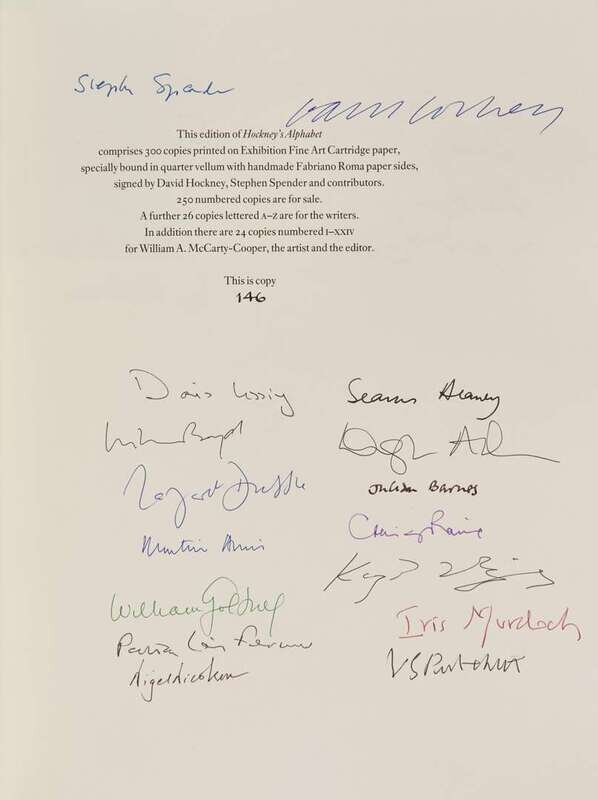 Stephen Spender
David Hockney
This edition of Hockney's Alphabet
comprises 300 copies printed on Exhibition Fine Art Cartridge paper,
specially bound in quarter vellum with handmade Fabriano Roma paper sides,
signed by David Hockney, Stephen Spender and contributors.
250 numbered copies are for sale.
A further 26 copies lettered A–Z are for the writers.
In addition there are 24 copies numbered I–XXIV
for William A. McCarty-Cooper, the artist and the editor.
This is copy
146
Doris Lessing
Seamus Heaney
William Boyd
Douglas Adams
Margaret Drabble
Julian Barnes
Martin Amis
Craig Raine
Kazuo Ishiguro
William Golding
Iris Murdoch
Patrick Leigh Fermor
VS Pritchett
Nigel Nicolson